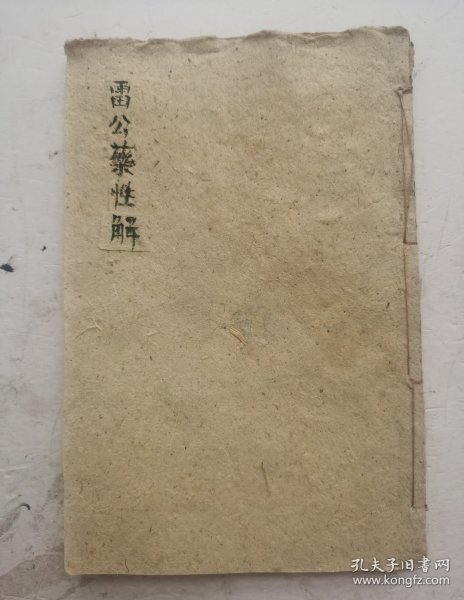 雷公藥性解
孔夫子旧书网
www.kongfz.com